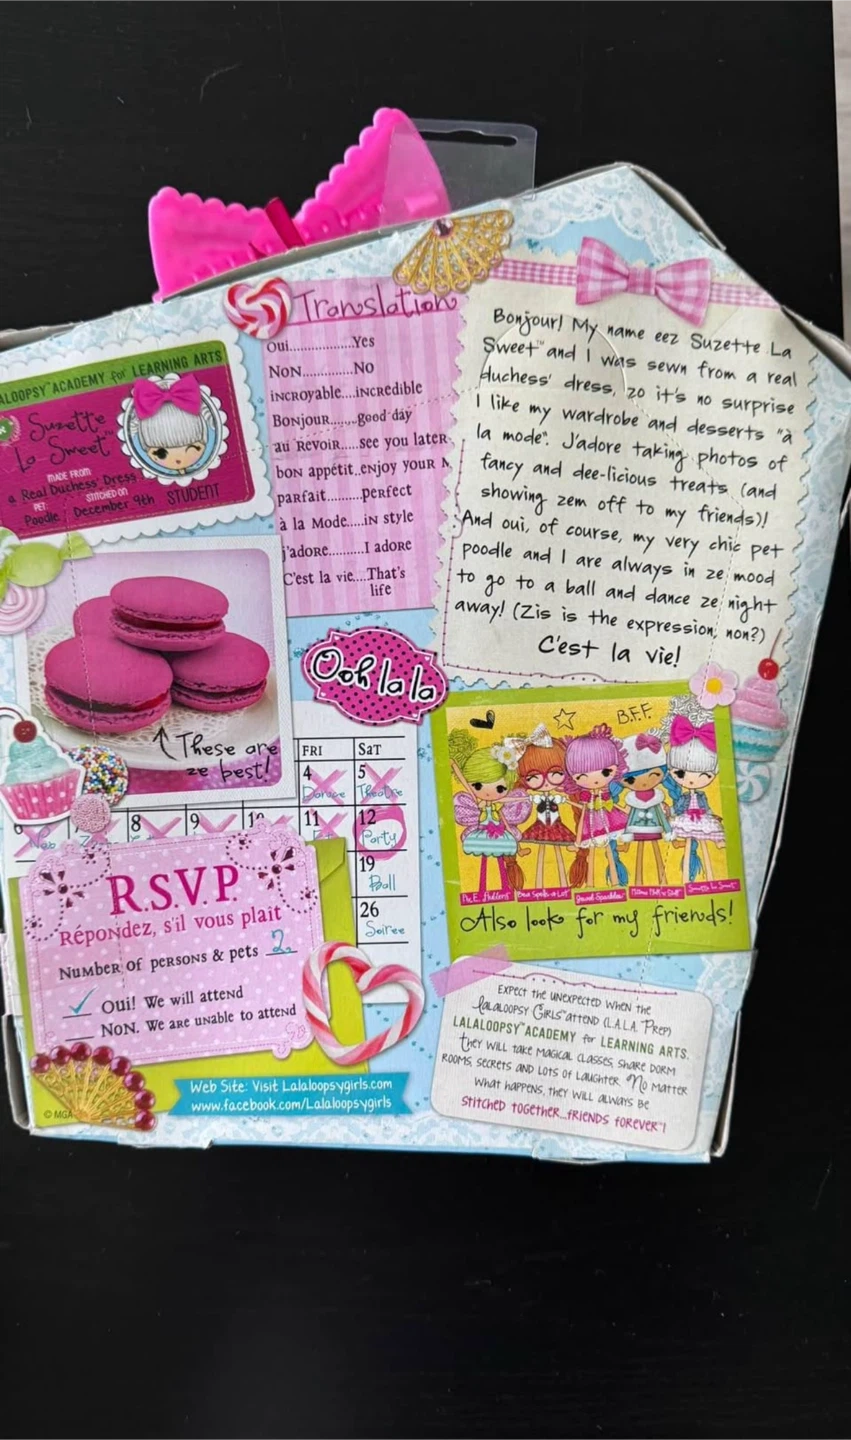 ALOOPSY™ ACADEMY for LEARNING ARTS
Suzette
La Sweet™
MADE FROM
a Real Duchess' Dress
PET
STITCHED ON
STUDENT
Poodle
December 9th
Translation
Oui.................Yes
Non................No
incroyable....incredible
Bonjour.......good day
au Revoir.....see you later
bon appétit..enjoy your
parfait..........perfect
à la Mode....in style
j'adore..........I adore
C'est la vie....That's
life
Bonjour! My name eez Suzette La
Sweet™ and I was sewn from a real
duchess' dress, zo it's no surprise
I like my wardrobe and desserts "à
la mode". J'adore taking photos of
fancy and dee-licious treats (and
showing zem off to my friends)!
And oui, of course, my very chic pet
poodle and I are always in ze mood
to go to a ball and dance ze night
away! (Zis is the expression, non?)
C'est la vie!
Ooh la la
These are
ze best!
FRI
Sat
4
5
Dance
Theatre
8
9
10
11
12
Party
19
Ball
26
Soiree
R.S.V.P.
Répondez, s'il vous plait
Number of persons & pets 2
Oui! We will attend
Non. We are unable to attend
B.F.F.
Bea Spells-a-Lot
Suzette La Sweet
Also look for my friends!
EXPECT THE UNEXPECTED WHEN THE
LALALOOPSY GIRLS™ ATTEND (L.A.L.A. PREP)
LALALOOPSY™ ACADEMY for LEARNING ARTS.
They WILL TAKE MAGICAL CLASSES, SHARE DORM
ROOMS, SECRETS AND LOTS OF LAUGHTER. No MATTER
WHAT HAPPENS, THEY WILL ALWAYS BE
STITCHED TOGETHER...FRIENDS FOREVER™!
Web Site: Visit Lalaloopsygirls.com
www.facebook.com/Lalaloopsygirls
© MGA